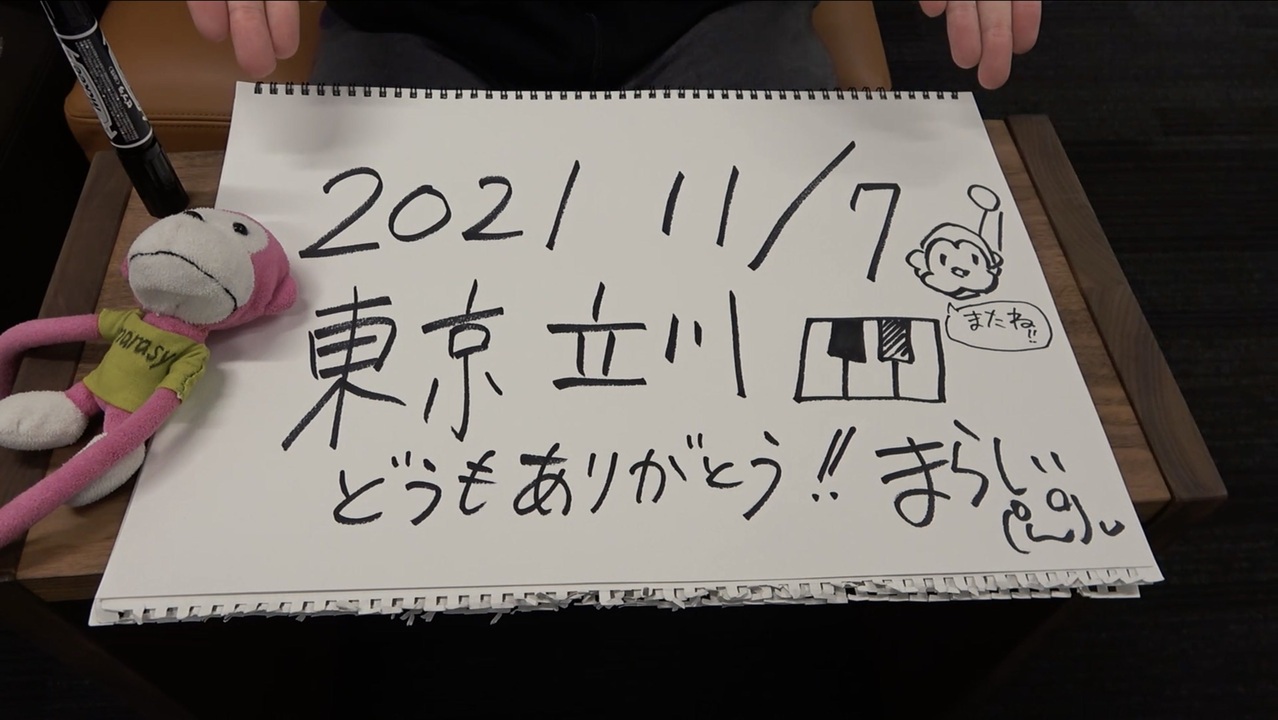 2021 11/7
またね!!
東京 立川
どうもありがとう!! まらしぃ
marasy